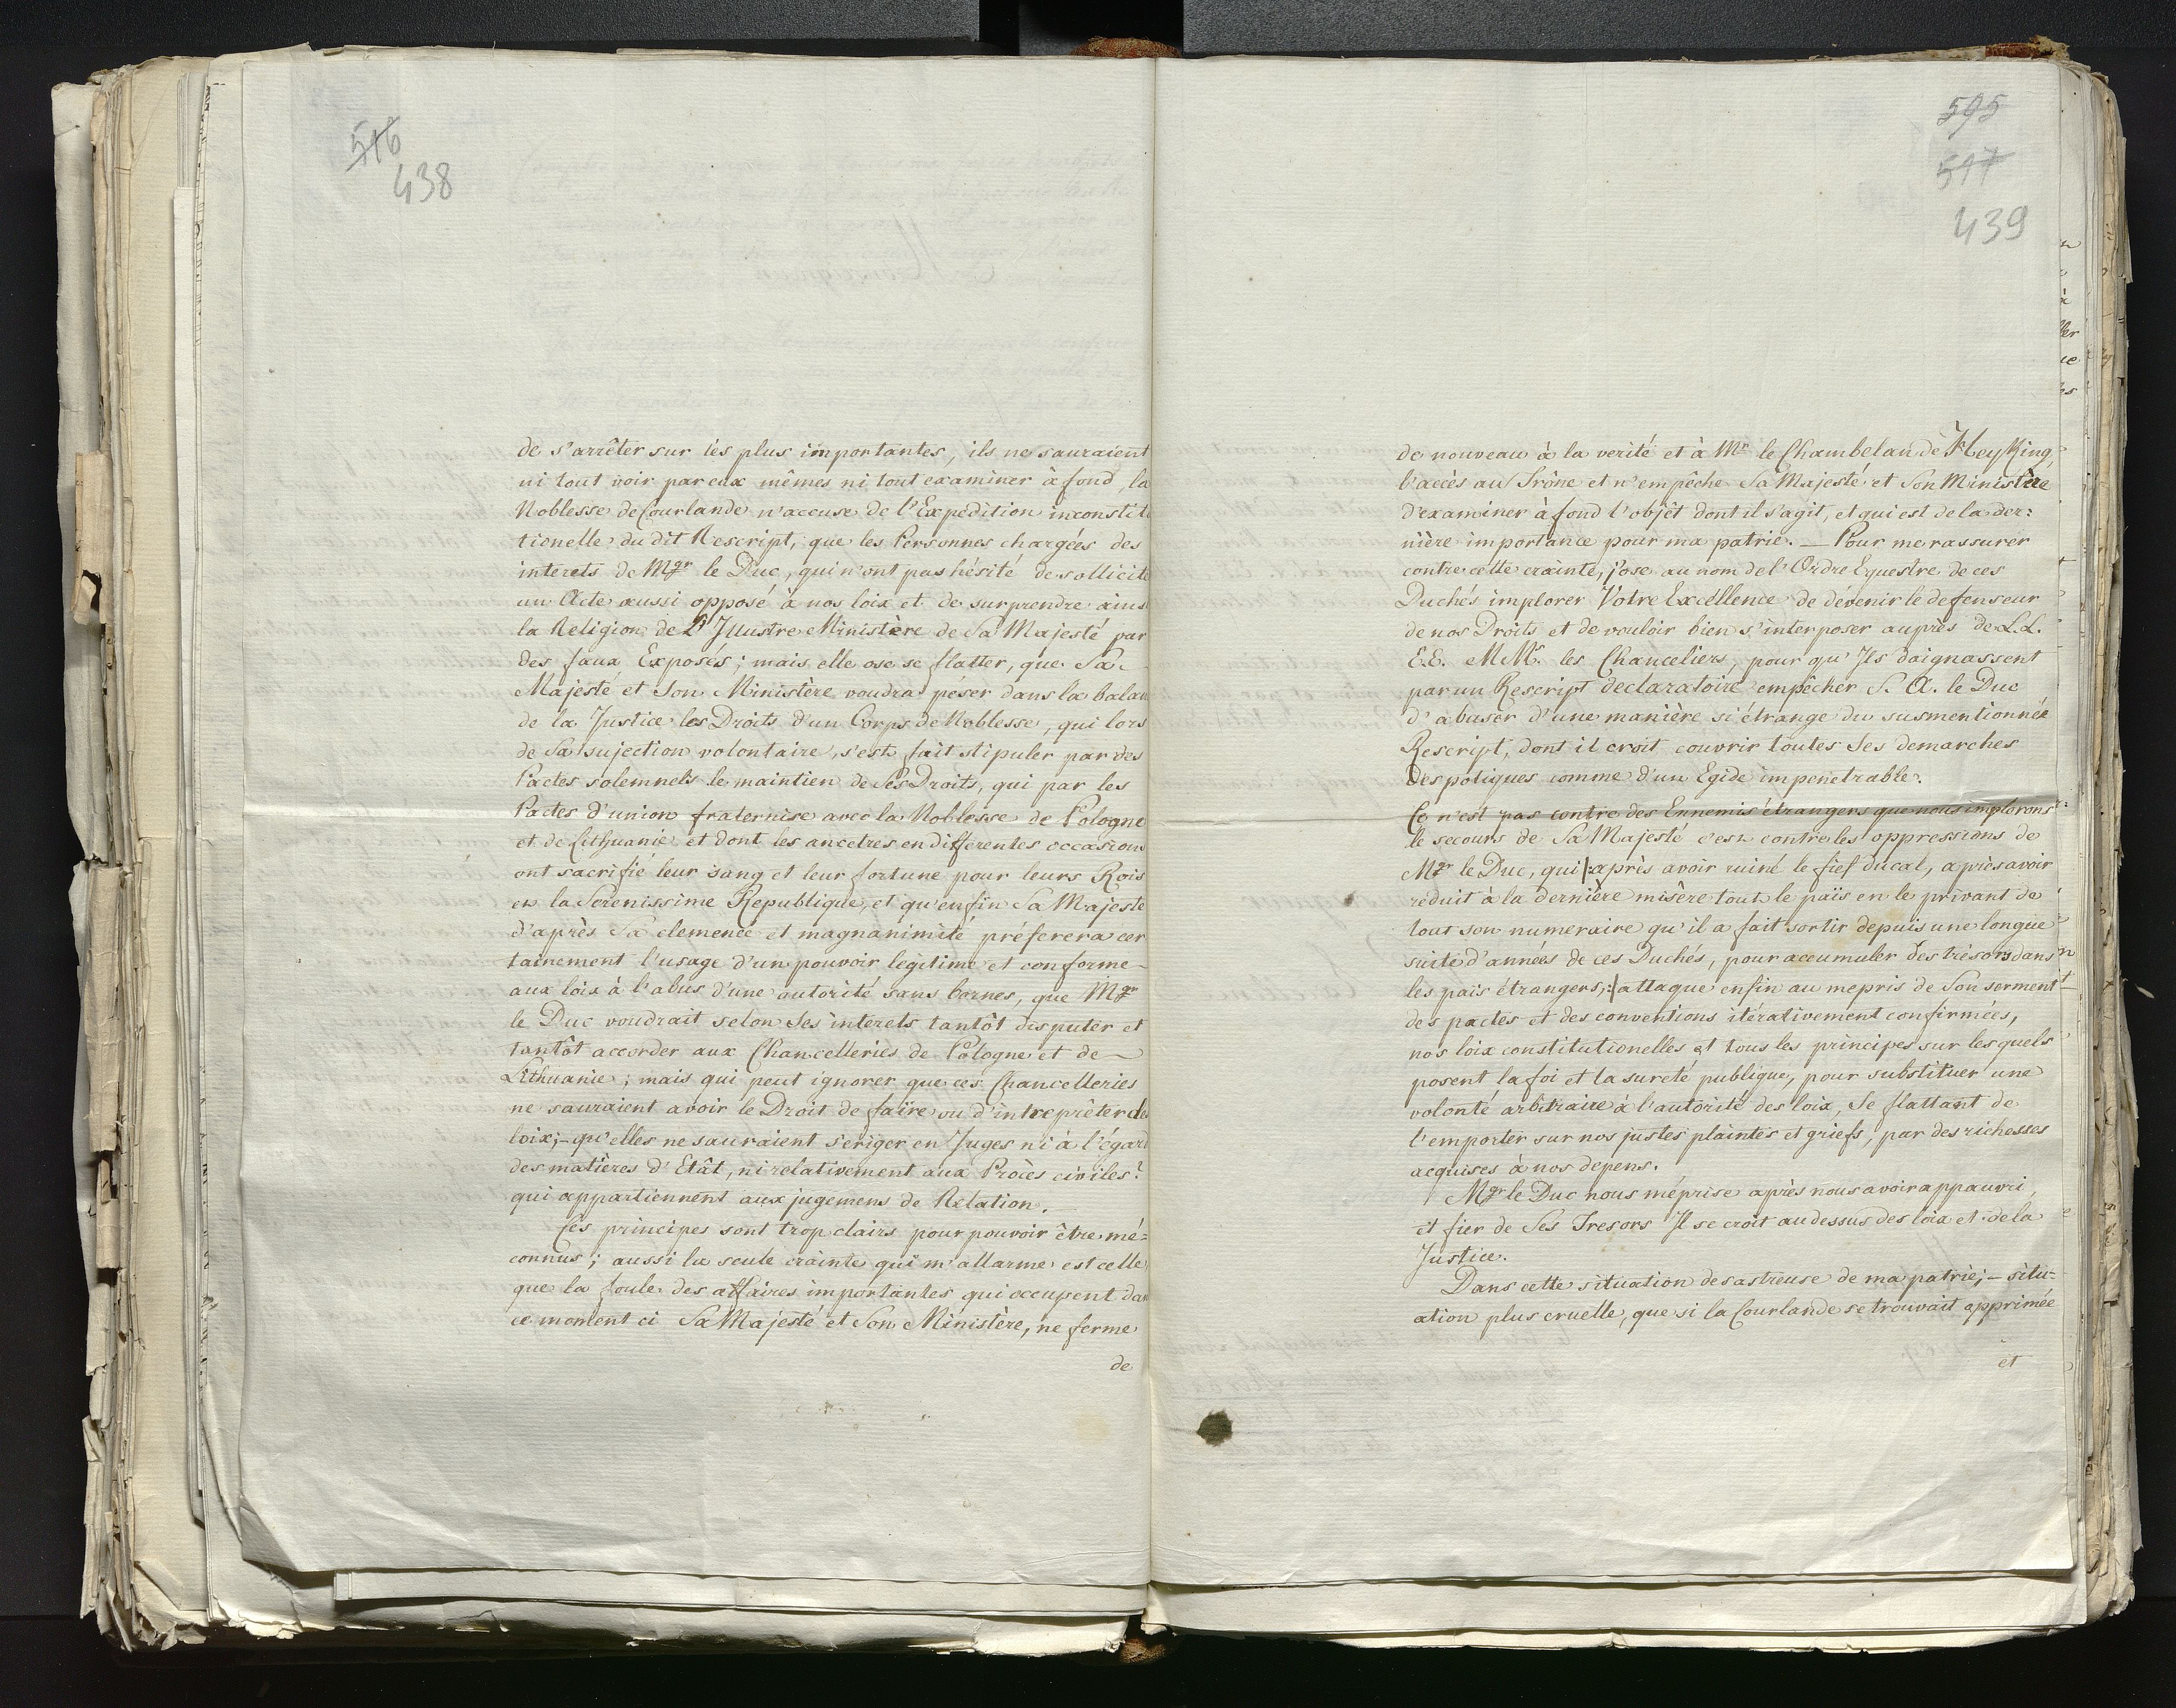 516
438
de s'arrêter sur les plus importantes, ils ne sauraient
ni tout voir par eux mêmes ni tout examiner à fond, la
Noblesse de Courlande n'accuse de l'Expedition inconstit
tionelle du dit Rescript, que les Personnes chargées des
interets de Mgr le Duc, qui n'ont pas hésité de sollicite
un Acte aussi opposé à nos loix et de surprendre ains
la Religion de L'Illustre Ministère de Sa Majesté par
des faux Exposés; mais elle ose se flatter, que Sa
Majesté et Son Ministère voudra péser dans la balan
de la Justice les Droits d'un Corps de Noblesse, qui lors
de Sa sujection volontaire, s'est fait stipuler par des
Pactes solemnels le maintien de Ses Droits, qui par les
Pactes d'union fraternise avec la Noblesse de Pologne
et de Lithuanie et dont les ancetres en différentes occasions
ont sacrifié leur sang et leur fortune pour leurs Rois
et la Serenissime Republique, et qu'enfin Sa Majeste
d'après Sa clemence et magnanimité préferera cer
tainement l'usage d'un pouvoir legitime et conforme
aux loix à l'abus d'une autorité sans bornes, que Mgr
le Duc voudrait selon Ses interets tantôt disputer et
tantôt accorder aux Chancelleries de Pologne et de
Lithuanie; mais qui peut ignorer que ces Chancelleries
ne sauraient avoir le Droit de faire ou d'intreprêter de
loix;- qu'elles ne sauraient s'eriger en Juges ni à l'égard
des matières d'Etât, ni relativement aux Procès civiles:
qui appartiennent aux jugemens de Relation.
Ces principes sont trop clairs pour pouvoir être mé=
connus; aussi la seule crainte qui m'allarme est celle
que la foule des affaires importantes qui occupent dan
ce moment ci Sa Majesté et Son Ministère, ne ferme
de
595
517
439
de nouveau à la verité et à Mr le Chambelan de HeyKing
l'accès au Trône et n'empêche Sa Majesté et Son Ministère
d'examiner à fond l'objét dont il s'agit, et qui est de la der:
nière importance pour ma patrie. — Pour me rassurer
contre cette crainte, j'ose au nom de l'Ordre Equestre de ces
Duchés implorer Votre Excéllence de devenir le defenseur
de nos Droits et de vouloir bien s'interposer auprès de L.L.
E.E. MMrs les Chanceliers, pour qu'Ils daignassent
par un Rescript declaratoire empêcher S. A. le Duc
d'abuser d'une manière si étrange du susmentionnée
Rescript, dont il croit couvrir toutes Ses demarches
despotiques comme d'un Egide impenetrable.
Ce n'est pas contre des Ennemis étrangers que nous implorons
le secours de Sa Majesté c'est contre les oppressions de
Mgr le Duc, qui |: après avoir ruiné le fief ducal, après avoir
réduit à la dernière misère tout le païs en le privant de
tout son numeraire qu'il a fait sortir depuis une longue
suite d'années de ces Duchés, pour accumuler des trésors dans
les païs étrangers, :| attaque enfin au mepris de Son serment
des pactes et des conventions itérativement confirmées,
nos loix constitutionelles et tous les principes sur lesquels
posent la foi et la sureté publique, pour substituer une
volonté arbitraire à l'autorité des loix, Se flattant de
l'emporter sur nos justes plaintes et griefs, par des richesses
acquises à nos depens.
Mgr le Duc nous méprise après nous avoir appauvri,
et fier de Ses Tresors Il se croit au dessus des loix et de la
Justice.
Dans cette situation desastreuse de ma patrie; - situ=
ation plus cruelle, que si la Courlande se trouvait opprimée
et